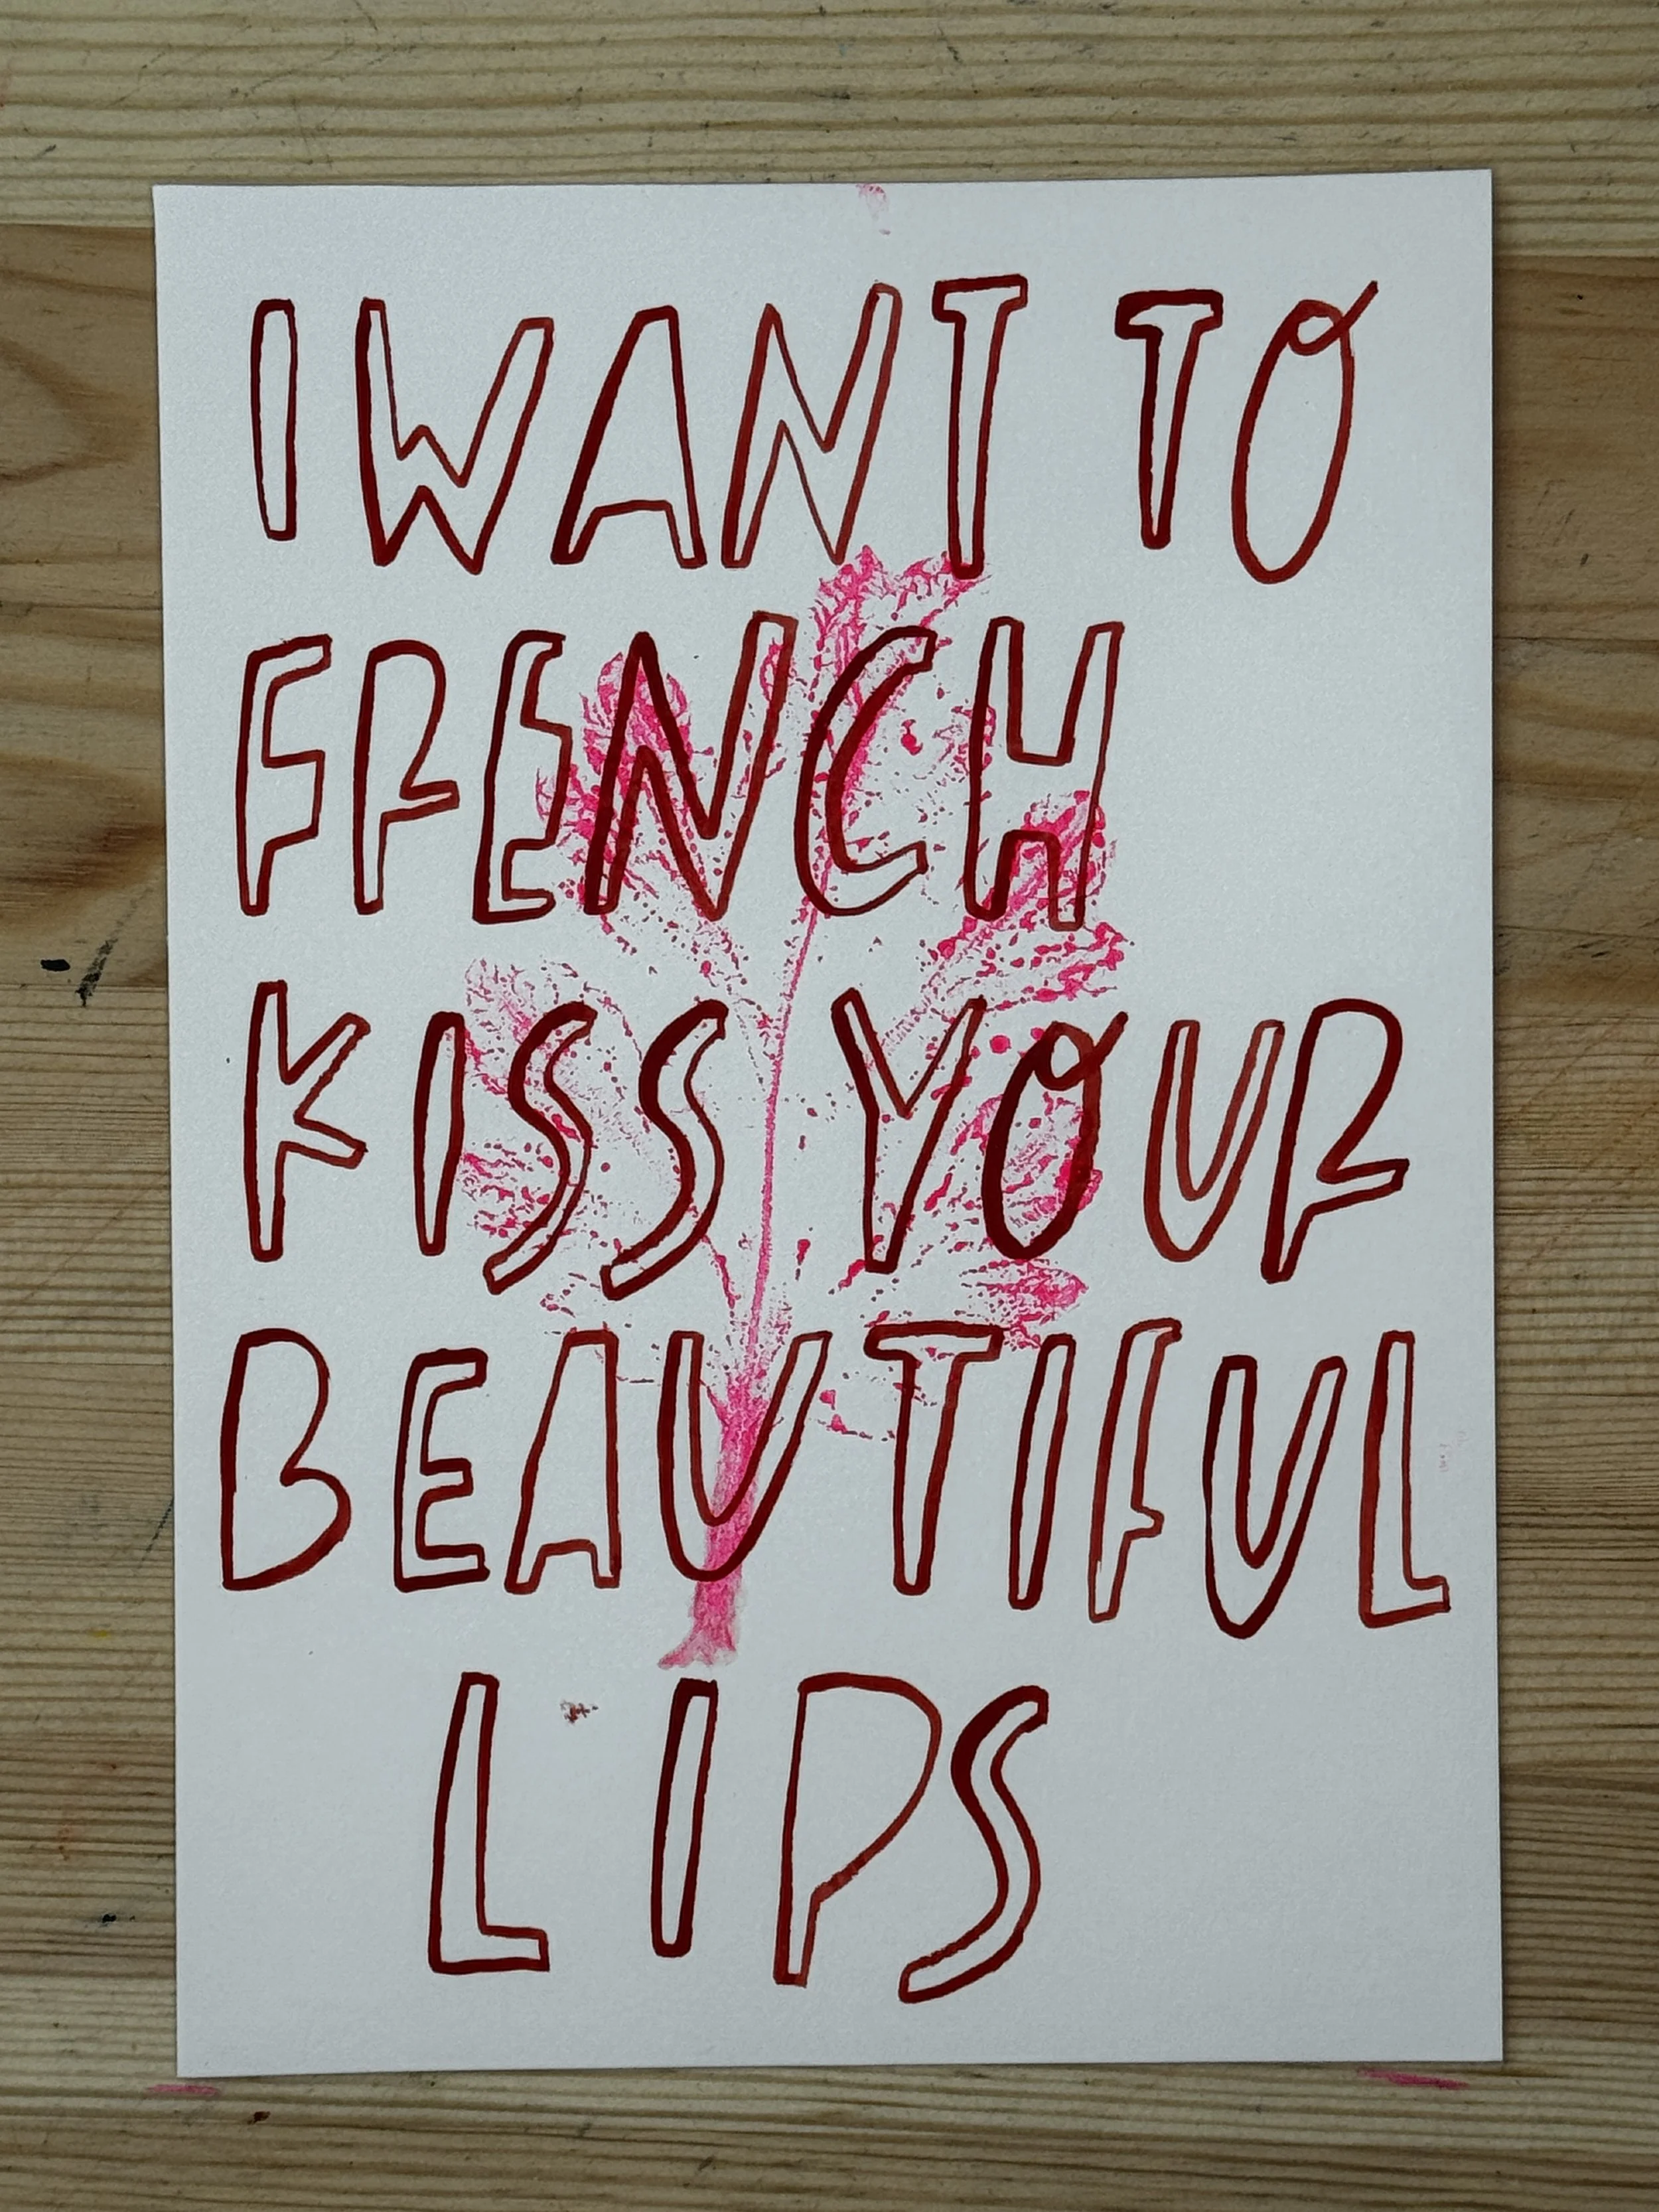 I WANT TO
FRENCH
KISS YOUR
BEAUTIFUL
LIPS